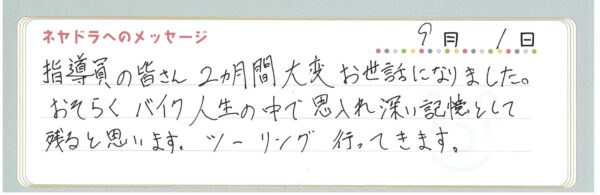 ネヤドラへのメッセージ
9月 1日
指導員の皆さん 2ヵ月間大変お世話になりました。
おそらくバイク人生の中で思入れ深い記憶として
残ると思います。ツーリング 行ってきます。